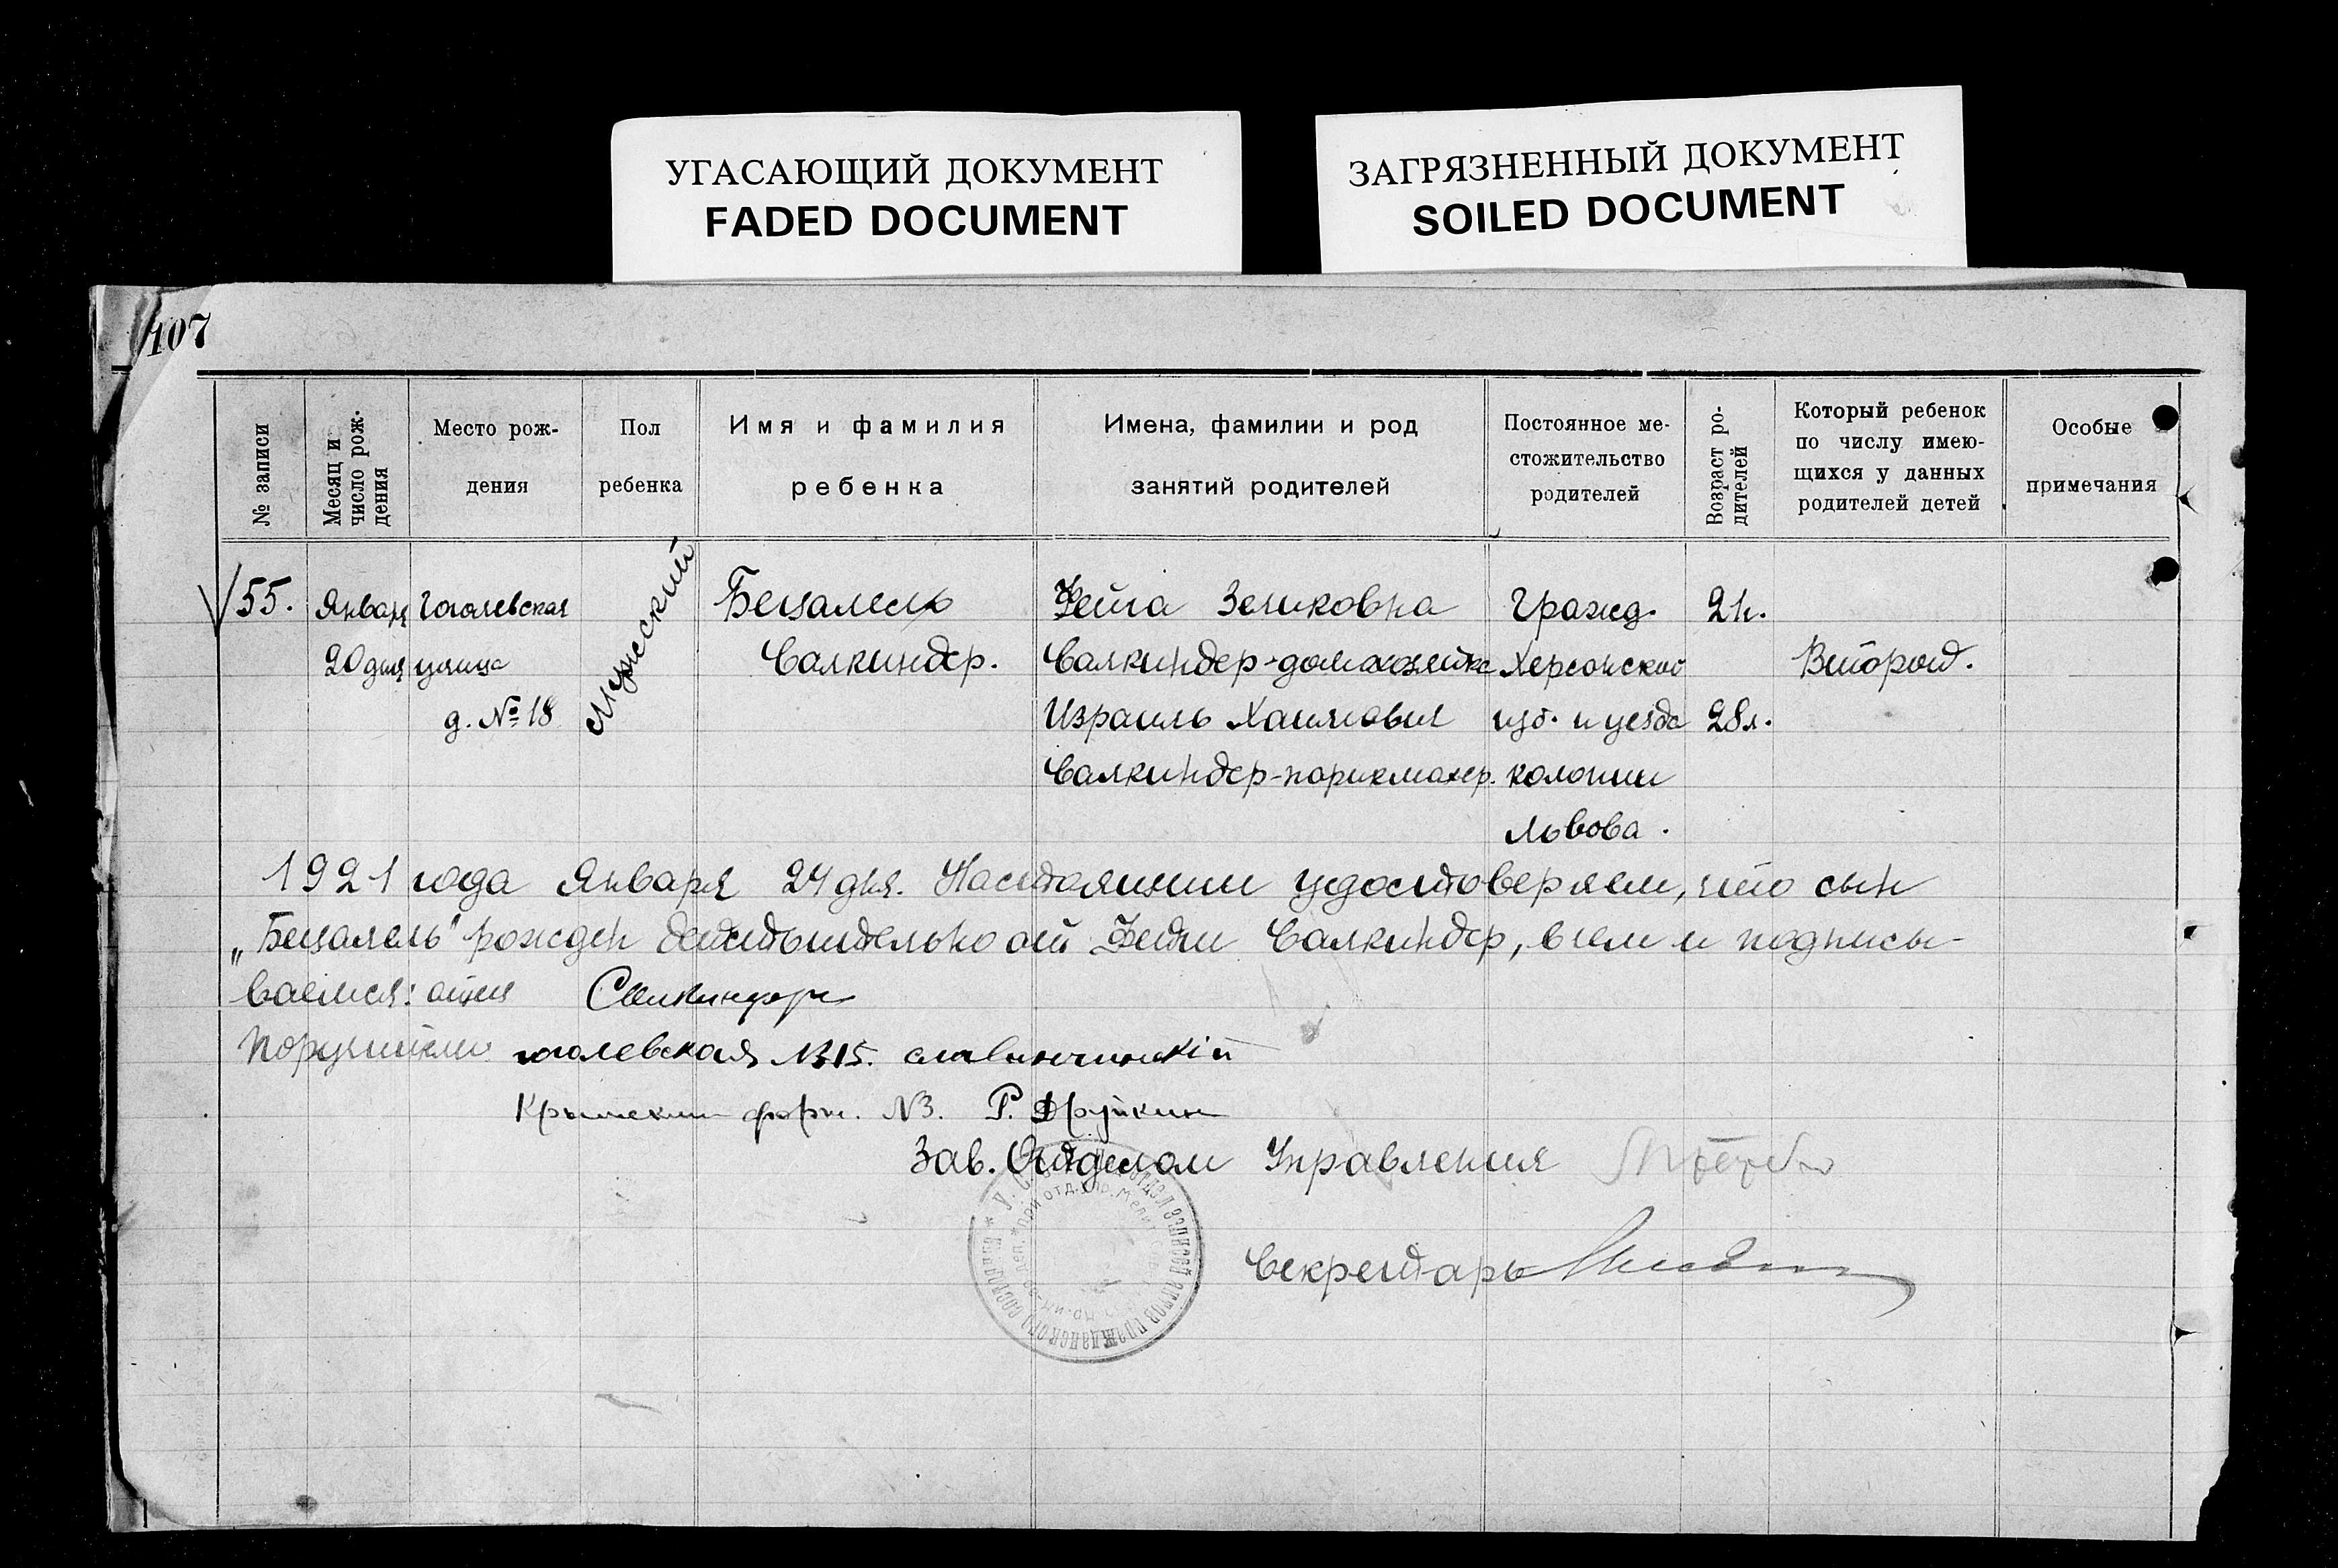 УГАСАЮЩИЙ ДОКУМЕНТ
FADED DOCUMENT
ЗАГРЯЗНЕННЫЙ ДОКУМЕНТ
SOILED DOCUMENT
107
№ записи
Месяц и
число рож-
дения
Место рож-
дения
Пол
ребенка
Имя и фамилия
ребенка
Имена, фамилии и род
занятий родителей
Постоянное ме-
стожительство
родителей
Возраст ро-
дителей
Который ребенок
по числу имею-
щихся у данных
родителей детей
Особые
примечания
55.
Января
20 дня
Гоголевская
улица
д. № 18
Мужской
Бецалель
Салкиндер.
Фейга Зеликовна
Салкиндер-домохозяйка
Израиль Хаимович
Салкиндер-парикмахер.
Гражд.
Херсонской
губ. и уезда
колонии
Львова.
28л.
Второй.
1921 года Января 24 дня. Настоящим удостоверяем, что сын
„Бецалель" рожден действительно от Фейги Салкиндер, в чем и подписы-
ваемся: отец Салкиндер
Поручители гоголевская №15.
Крымский №3. Р. Друйкин
Зав. Отделом Управления
Секретарь